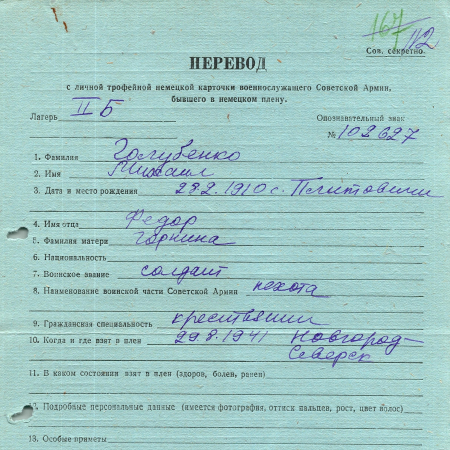 167
112
Сов. секретно.
ПЕРЕВОД
с личной трофейной немецкой карточки военнослужащего Советской Армии,
бывшего в немецком плену.
Лагерь II Б
Опознавательный знак
№ 102627
1. Фамилия Голубенко
2. Имя Михаил
3. Дата и место рождения 28.2.1910 с.
4. Имя отца Федор
5. Фамилия матери Горкина
6. Национальность
7. Воинское звание солдат
8. Наименование воинской части Советской Армии пехота
9. Гражданская специальность крестьянин
10. Когда и где взят в плен 29.8.1941 Новгород-
Северск
11. В каком состоянии взят в плен (здоров, болен, ранен)
12. Подробные персональные данные (имеется фотография, оттиск пальцев, рост, цвет волос)
13. Особые приметы